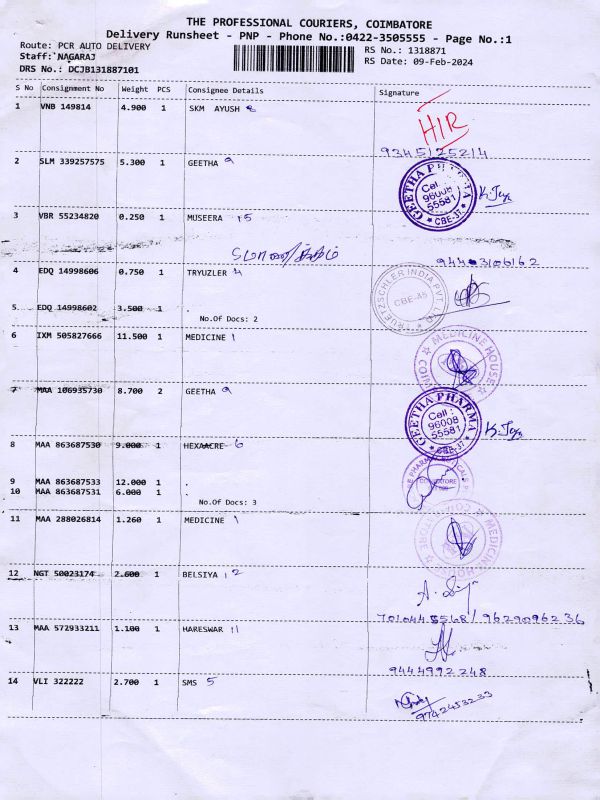 THE PROFESSIONAL COURIERS, COIMBATORE
Delivery Runsheet - PNP - Phone No.:0422-3505555 - Page No.:1
Route: PCR AUTO DELIVERY RS No.: 1318871
Staff: NAGARAJ RS Date: 09-Feb-2024
DRS No.: DCJB131887101
S No Consignment No Weight PCS Consignee Details Signature
1 VNB 149814 4.900 1 SKM AYUSH 8
H/R
9345125214
2 SLM 339257575 5.300 1 GEETHA 9
GEETHA PHARMA
Cell :
96008
55581
CBE-37
3 VBR 55234820 0.250 1 MUSEERA 15
9443106162
4 EDQ 14998606 0.750 1 TRYUZLER 4
TRUETZSCHLER INDIA PVT. LTD.
CBE-45
5 EDQ 14998602 3.500 1 .
No.Of Docs: 2
6 IXM 505827666 11.500 1 MEDICINE 1
MEDICINE HOUSE
7 MAA 106935730 8.700 2 GEETHA 9
GEETHA PHARMA
Cell :
96008
55581
CBE-37
8 MAA 863687530 9.000 1 HEXAACRE 6
9 MAA 863687533 12.000 1 .
10 MAA 863687531 6.000 1 .
No.Of Docs: 3
COIMBATORE
11 MAA 288026814 1.260 1 MEDICINE 1
MEDICINE HOUSE
12 NGT 50023174 2.600 1 BELSIYA 12
7010448568/9629096236
13 MAA 572933211 1.100 1 HARESWAR 11
9444992248
14 VLI 322222 2.700 1 SMS 5
9742453233